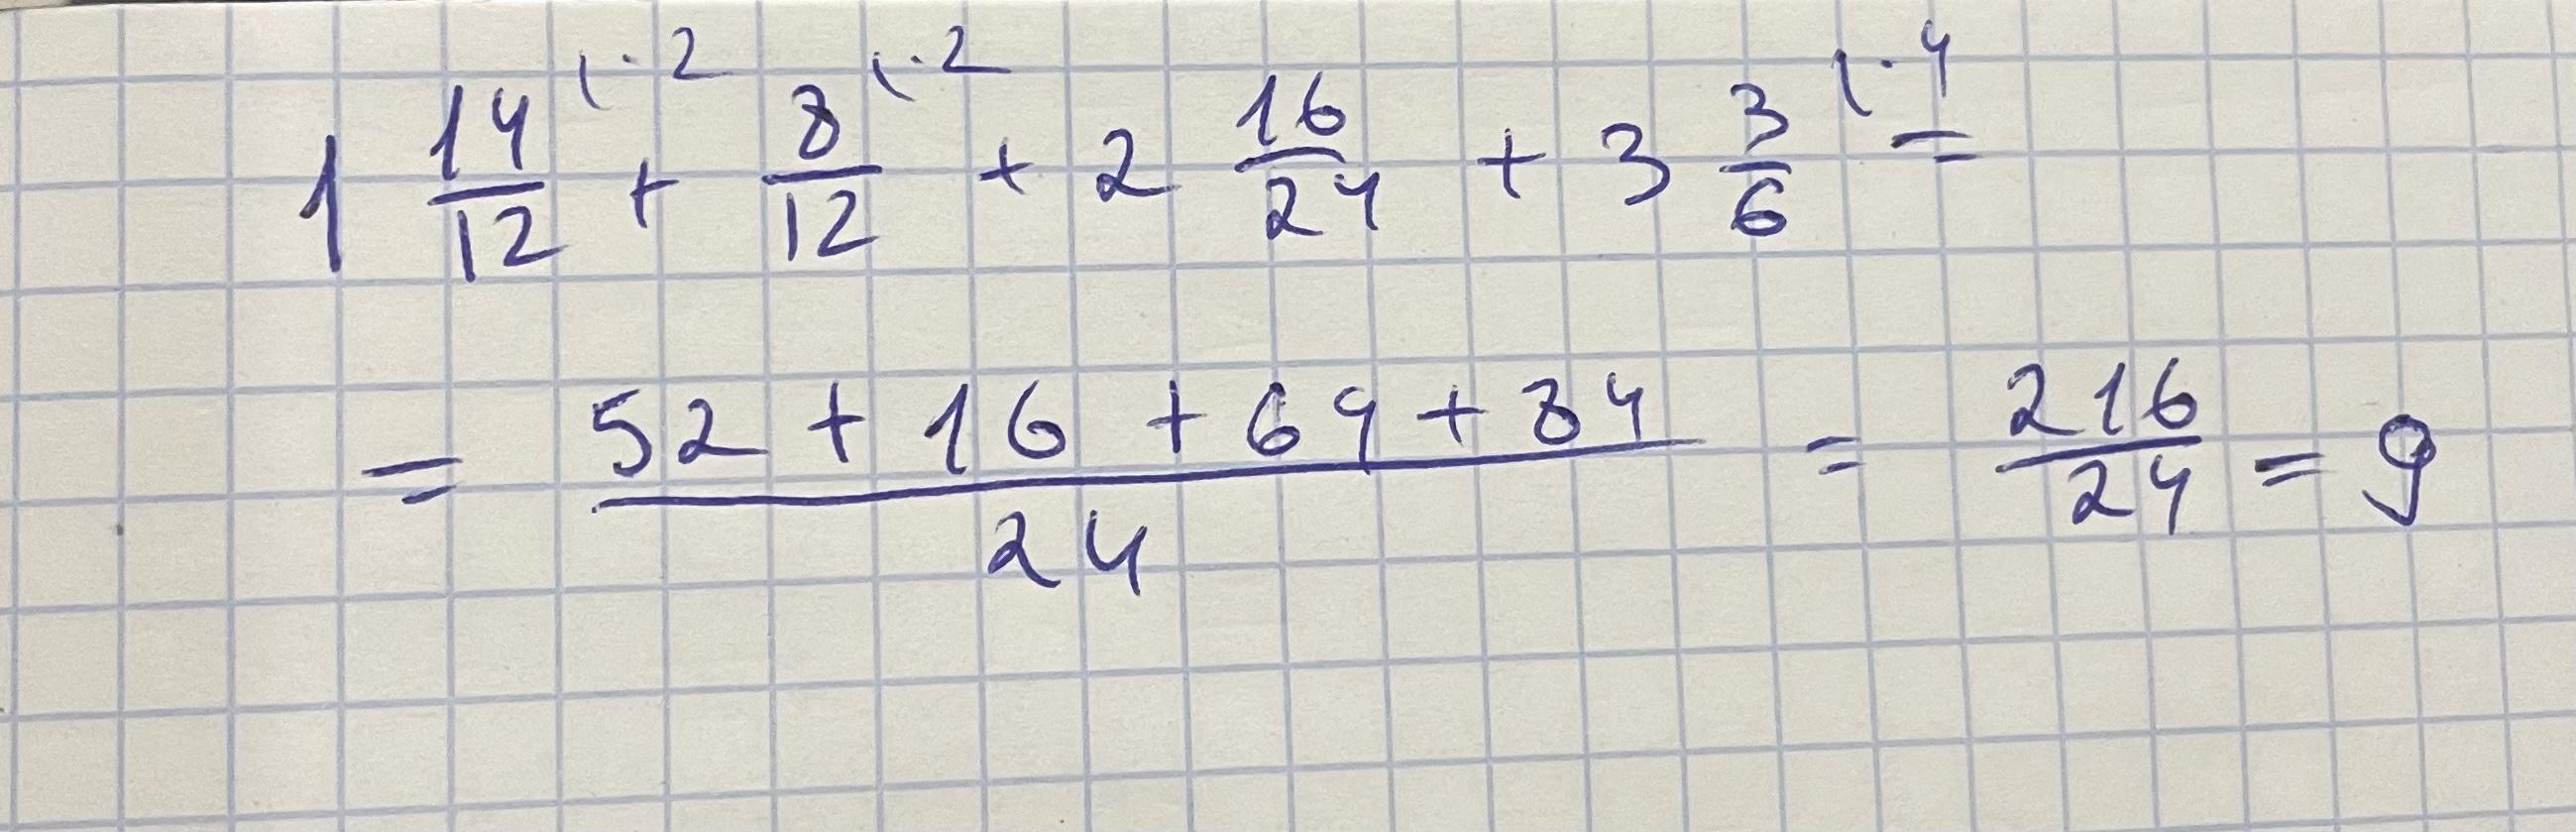 1 14/12 (·2 + 8/12 (·2 + 2 16/24 + 3 3/6 (·4 =
= (52 + 16 + 64 + 84)/24 = 216/24 = 9